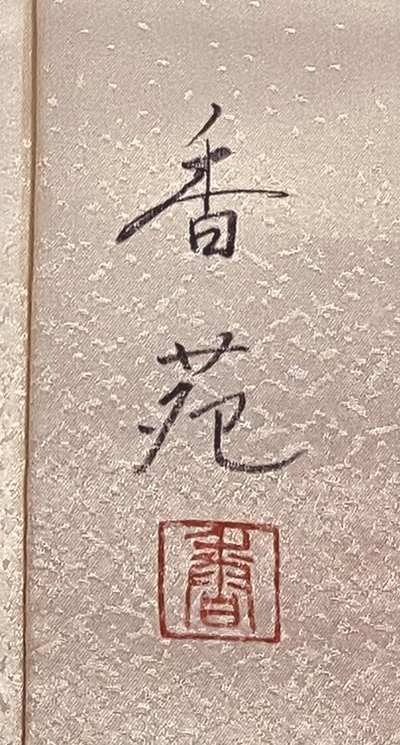 香苑
香